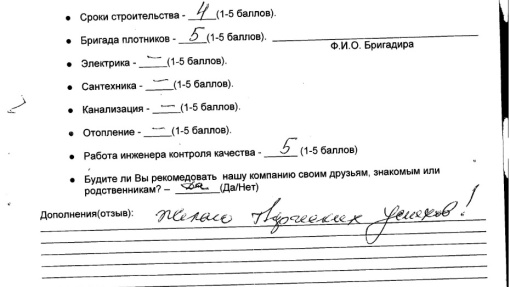 • Сроки строительства - 4 (1-5 баллов).
• Бригада плотников - 5 (1-5 баллов). ____________
Ф.И.О. Бригадира
• Электрика - — (1-5 баллов).
• Сантехника - — (1-5 баллов).
• Канализация - — (1-5 баллов).
• Отопление - — (1-5 баллов).
• Работа инженера контроля качества - 5 (1-5 баллов)
• Будите ли Вы рекомедовать нашу компанию своим друзьям, знакомым или
родственникам? – Да (Да/Нет)
Дополнения(отзыв): Желаю Творческих успехов!